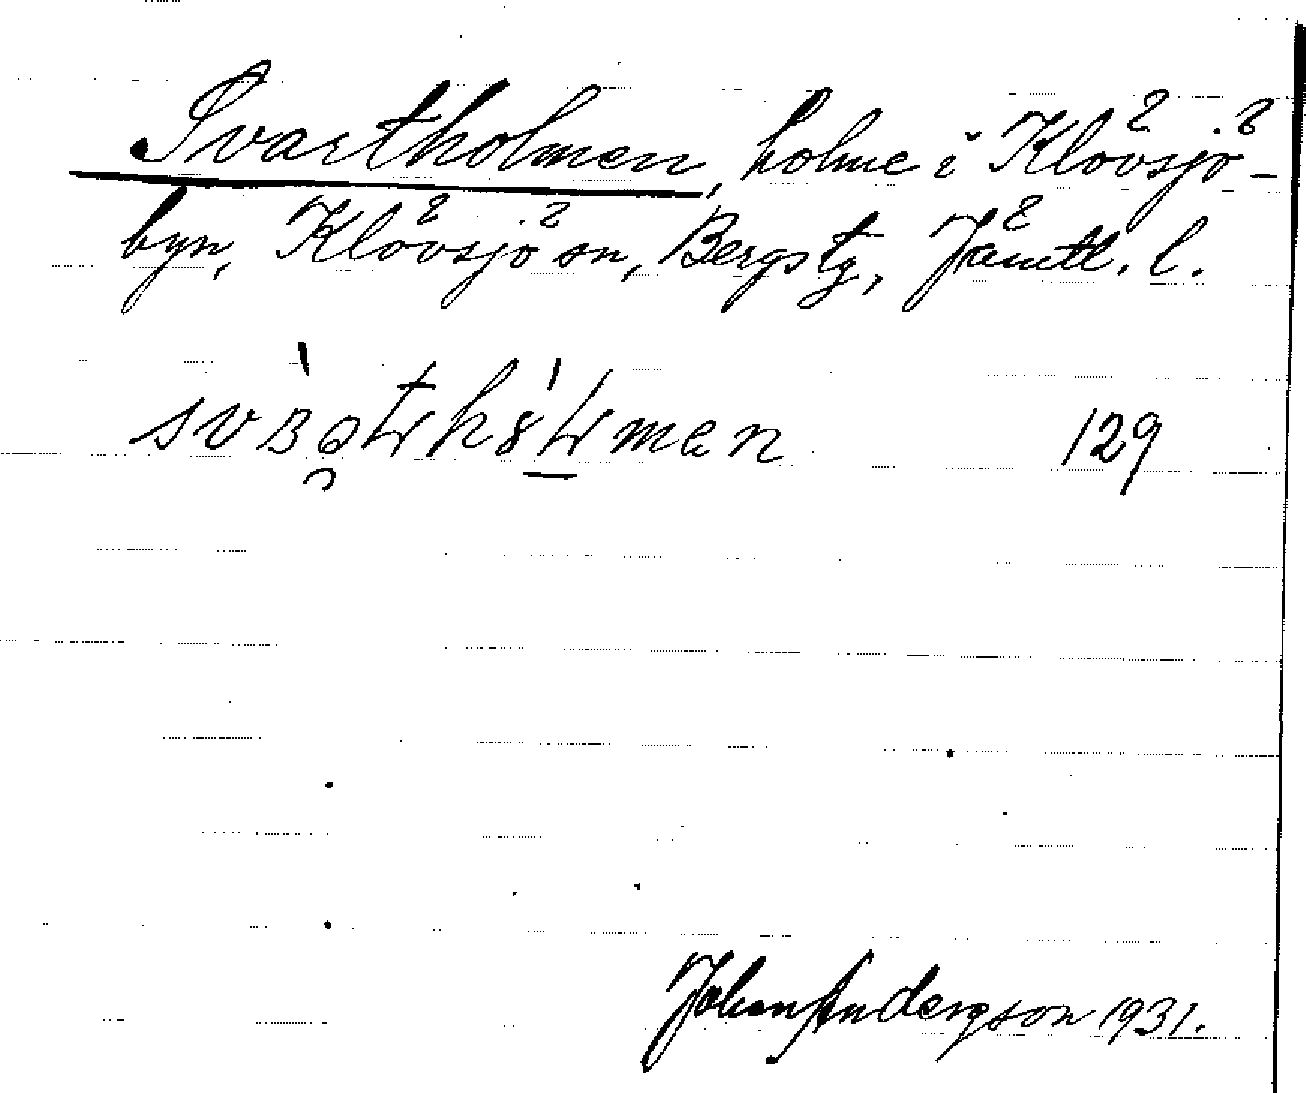 Svartholmen, holme i Klövsjö-
byn, Klövsjö sn, Bergs tg, Jämtl. l.
129
Johan Andersson 1931.